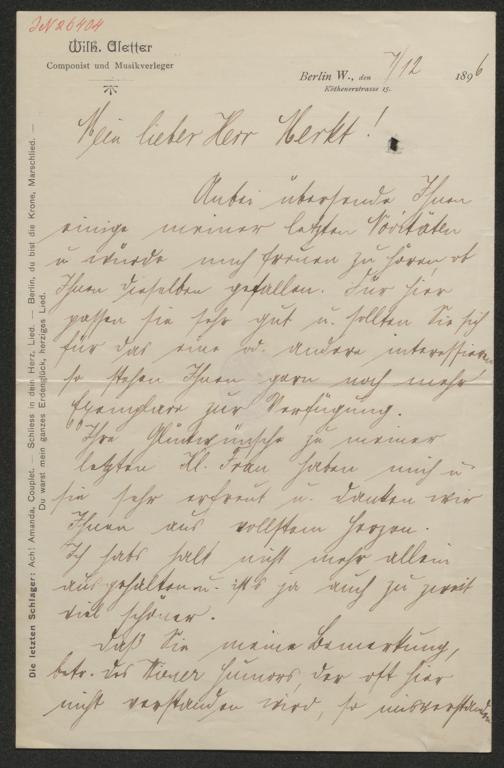 JN 26404
Wilh. Aletter
Componist und Musikverleger
Berlin W., den 7/12 1896
Köthenerstrasse 15.
Mein lieber Herr Merkt!
Anbei übersende Ihnen
einige meiner letzten Novitäten
u würde mich freuen zu hören, ob
Ihnen dieselben gefallen. Für hier
passen sie sehr gut u. sollten Sie sich
für das eine od. andere interessieren
so stehen Ihnen gern noch mehr
Exemplare zur Verfügung.
Ihre Glückwünsche zu meiner
letzten Kl. Frau haben mich u
sie sehr erfreut u. danken wir
Ihnen aus vollstem Herzen.
Ich habs halt nicht mehr allein
ausgehalten u. ists ja auch zu zweit
viel schöner.
Daß Sie meine Bemerkung,
betr. des Wiener Humors, der oft hier
nicht verstanden wird, so misverstanden
Die letzten Schlager: Ach! Amanda, Couplet. — Schliess in dein Herz, Lied. — Berlin, du bist die Krone, Marschlied. —
Du warst mein ganzes Erdenglück, herziges Lied.